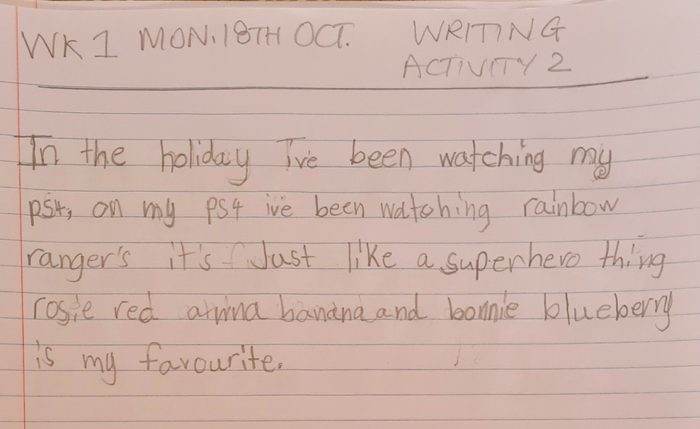 WK 1 MON. 18TH OCT. WRITING
ACTIVITY 2
In the holiday I've been watching my
ps4, on my ps4 ive been watching rainbow
ranger's it's Just like a superhero thing
rosie red banana and bonnie blueberry
is my favourite.